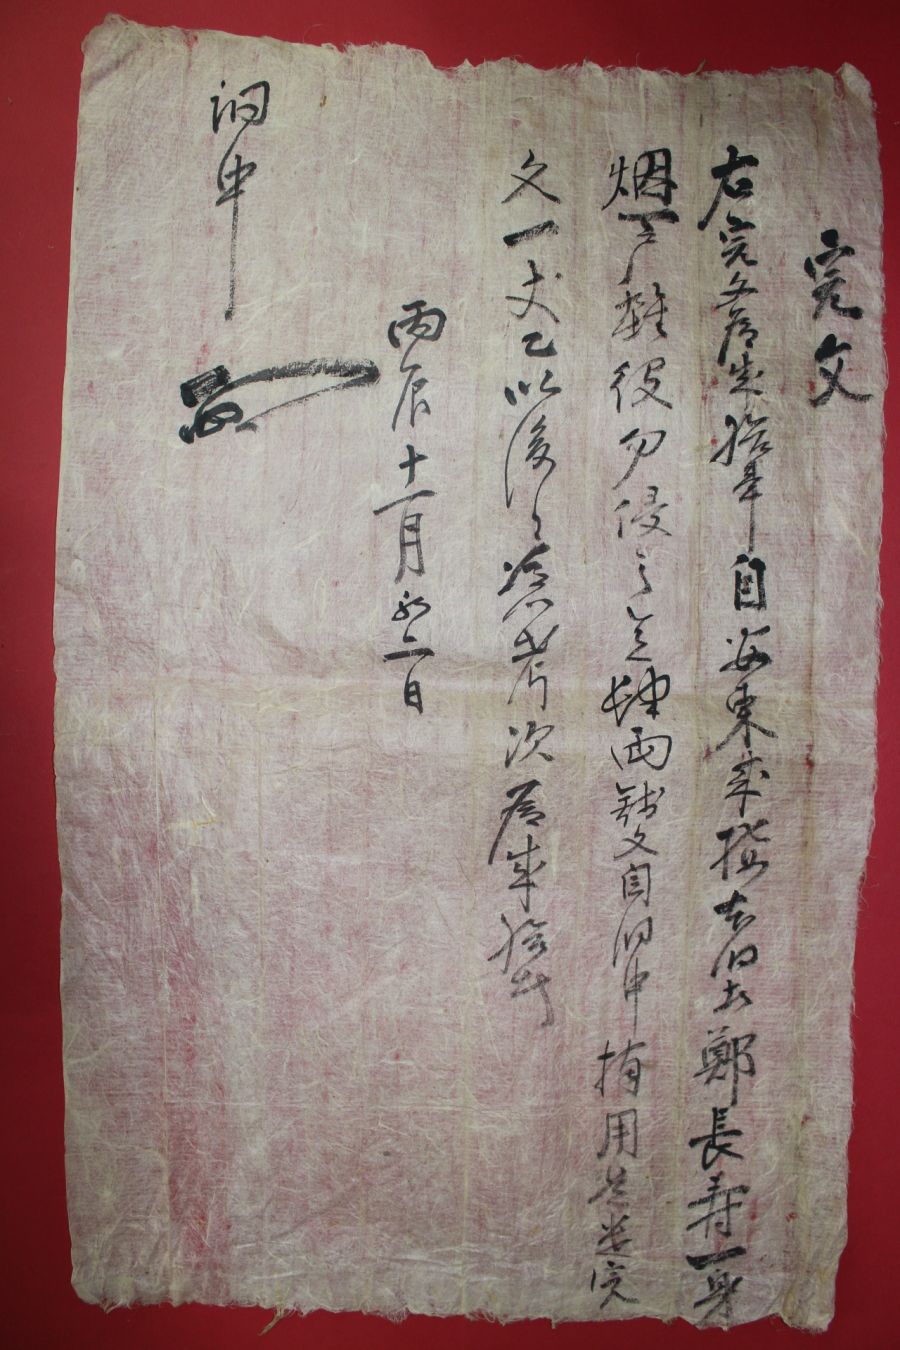 完文
右完文爲成給事自安東來接本洞是如鄭長壽一身
烟戶雜役勿侵之意肆兩錢文自洞中捧用是遣完
文一丈乙以後憑考次爲成給事
丙辰十一月初二日
洞中